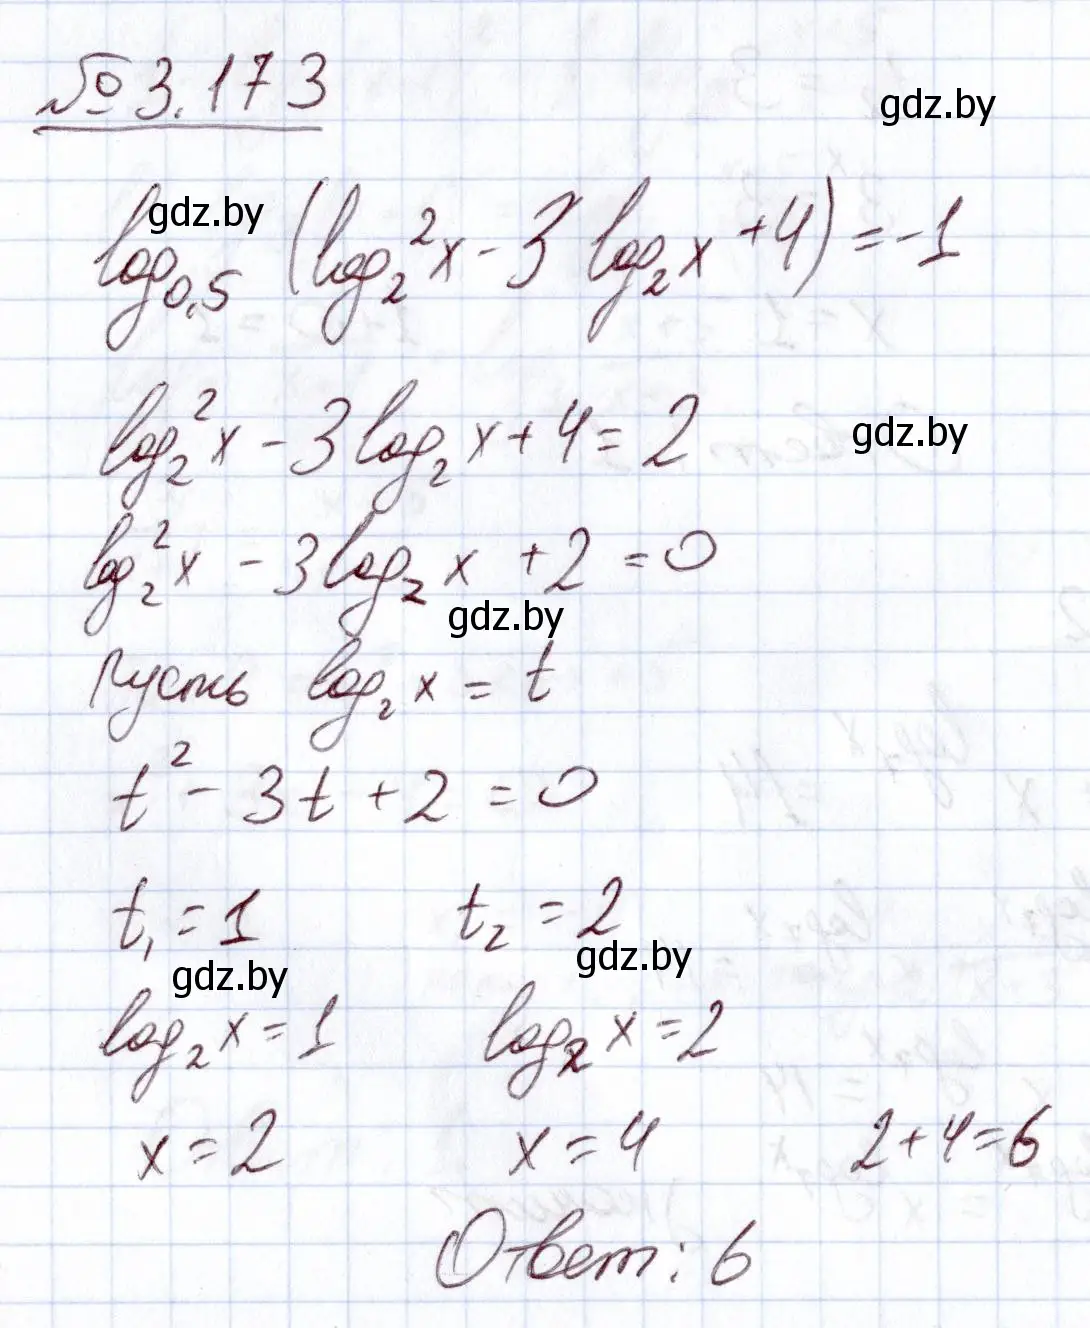 №3.173
gdz.by
gdz.by
log₀,₅ (log₂²x - 3 log₂x + 4) = -1
log₂²x - 3 log₂x + 4 = 2
gdz.by
log₂²x - 3 log₂x + 2 = 0
gdz.by
Пусть log₂x = t
t² - 3t + 2 = 0
t₁ = 1 t₂ = 2
gdz.by gdz.by
log₂x = 1 log₂x = 2
x = 2 x = 4 2+4=6
Ответ: 6